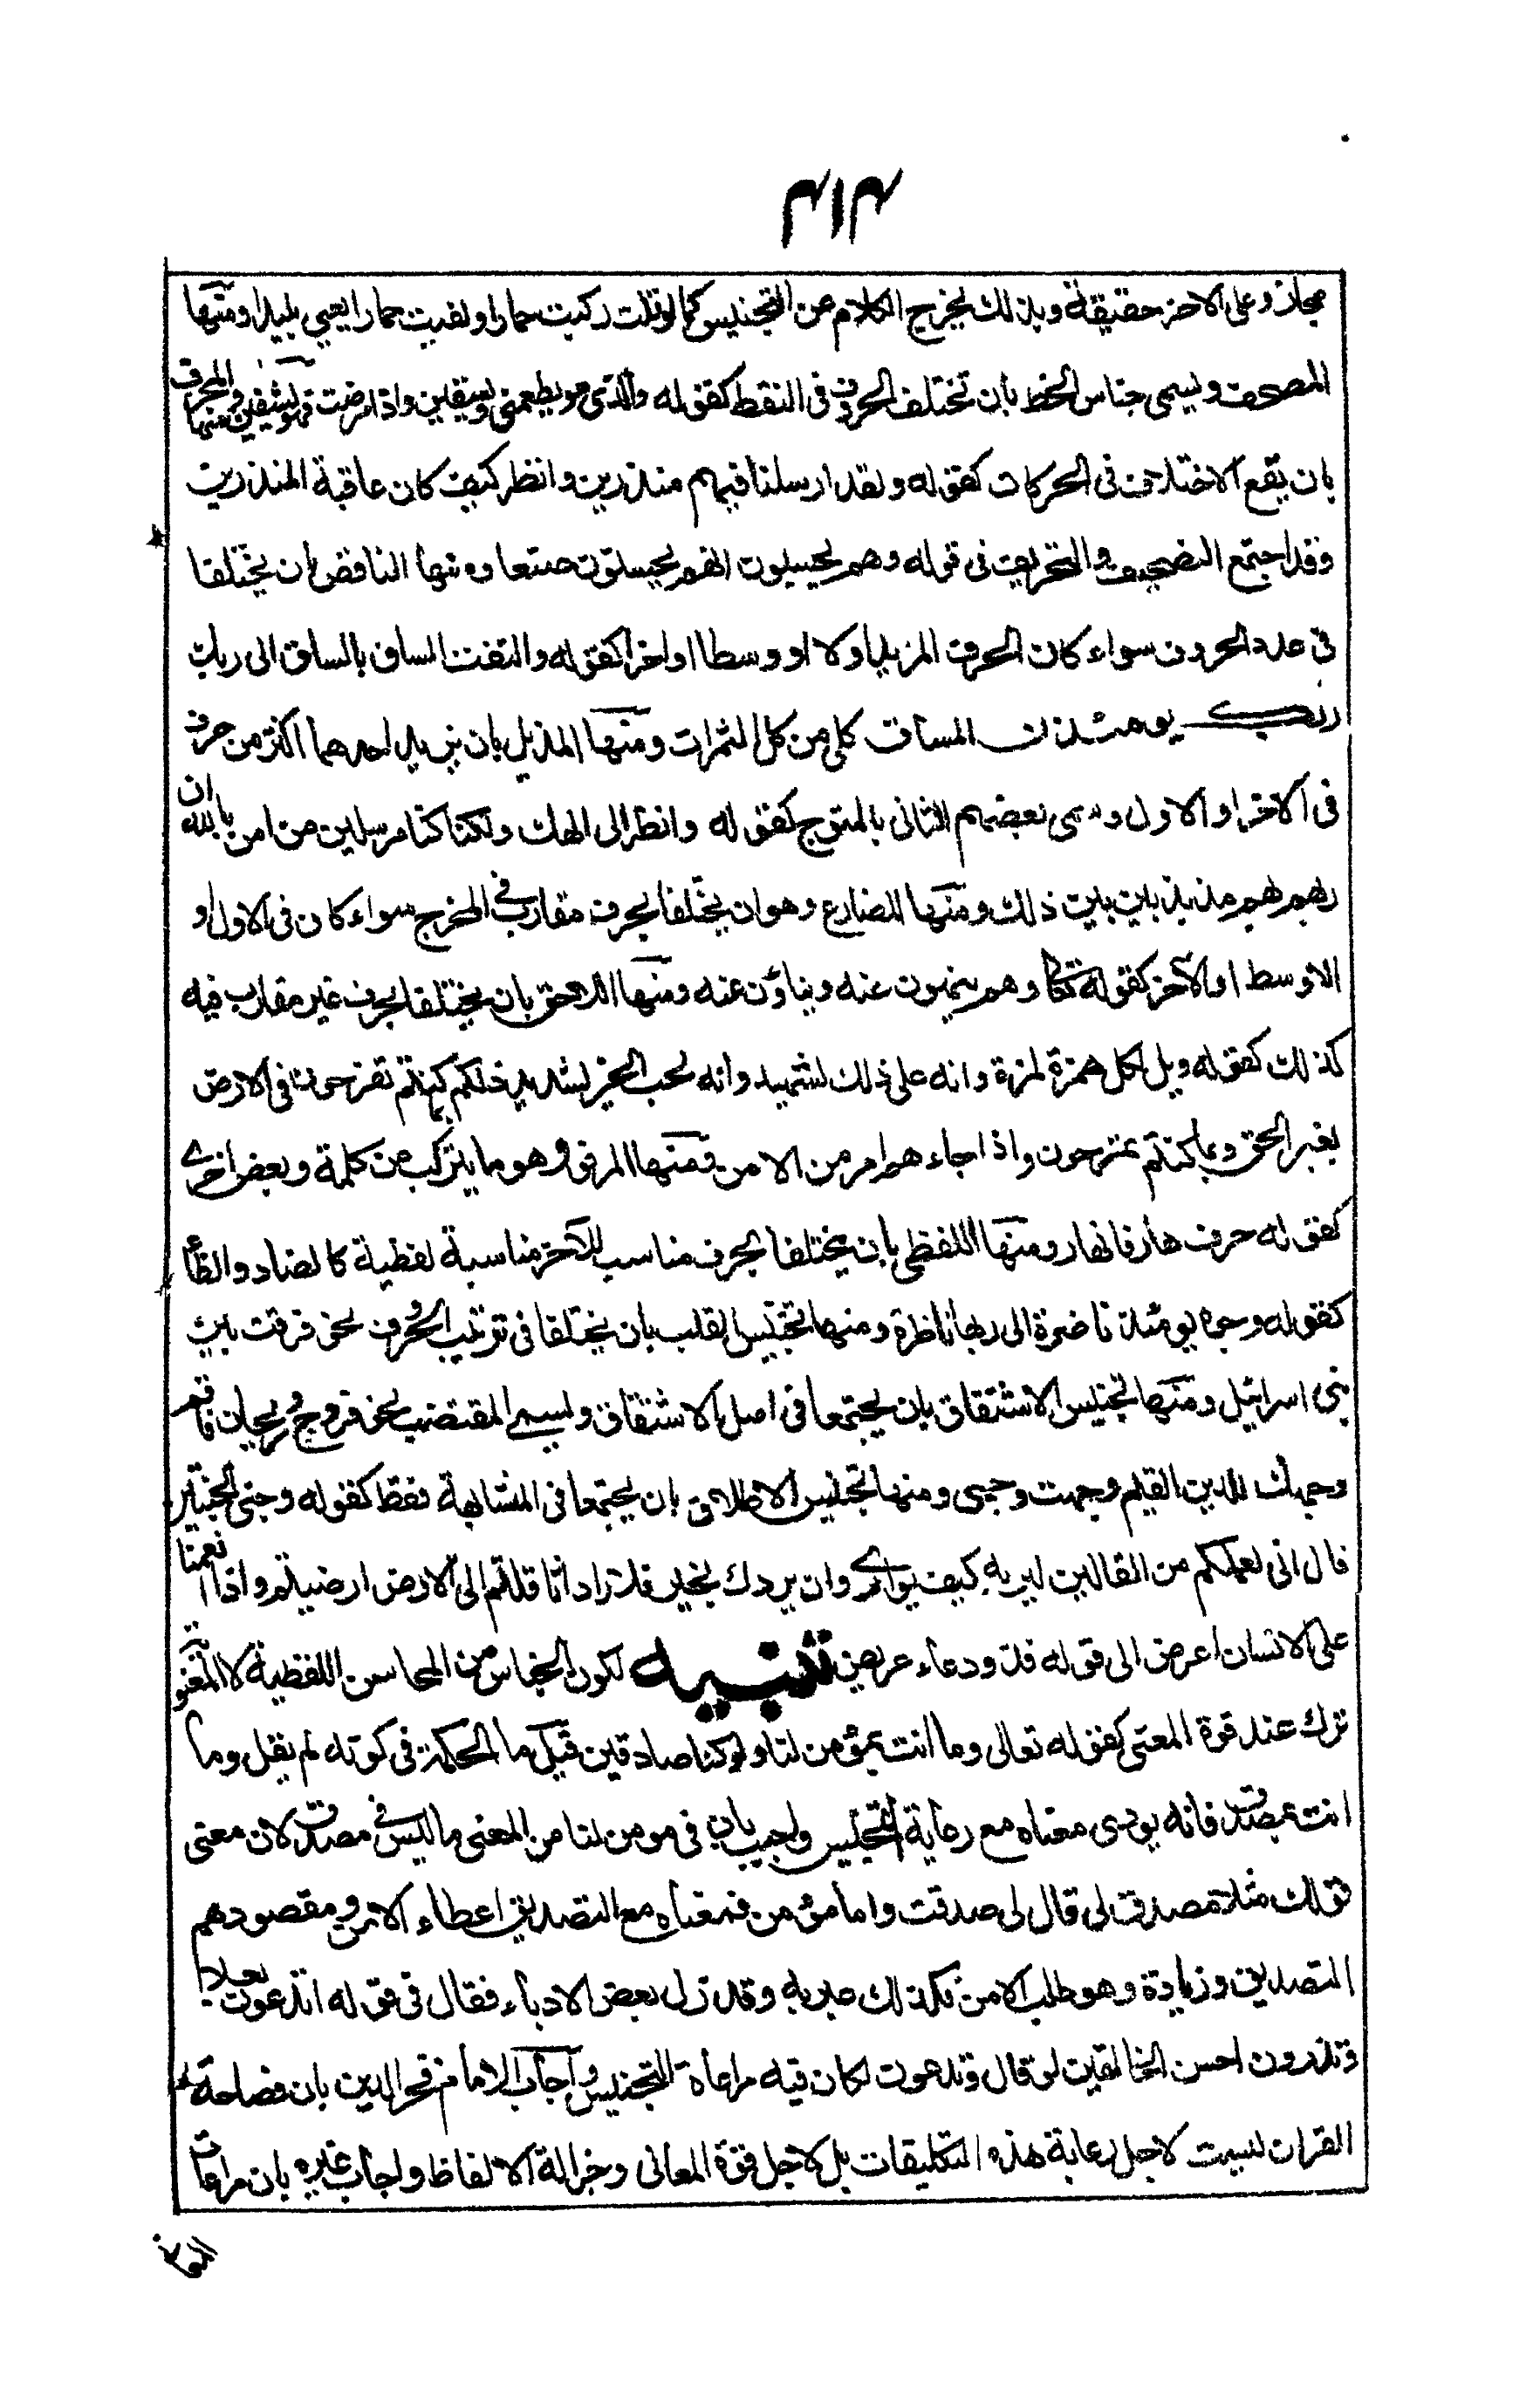 ٣١٣
مجاز وعلى الاخر حقيقة وبذلك يخرج الكلام عن التجنيس كما لو قلت ركبت حمارا ولقيت حمارا يعني بليدا ومنها
المصحف ويسمى جناس الخط بان تختلف الحروف فى النقط كقوله والذى هو يطعمنى ويسقين واذا مرضت فهو يشفين ومنها المحرف
بان يقع الاختلاف فى الحركات كقوله ولقد ارسلنا فيهم منذرين وانظر كيف كان عاقبة المنذرين
وقد اجتمع التصحيف والتحريف فى قوله وهم يحسبون انهم يحسنون صنعا ومنها الناقص بان يختلفا
فى عدد الحروف سواء كان الحرف المزيد اولا او وسطا او اخرا كقوله والتفت الساق بالساق الى ربك
ربك يومئذن المساق كلى من كل الثمرات ومنها المذيل بان يزيد احدهما اكثر من حرف
فى الاخر او الاول وسمى بعضهم الثانى بالمتوج كقوله وانظر الى الهك ولكنا كنا مرسلين من امن بالله ان
ربهم بهم مذبذبين بين ذلك ومنها المضارع وهو ان يختلفا بحرف مقارب فى المخرج سواء كان فى الاول او
الاوسط او الآخر كقوله تعالى وهم ينهون عنه ويناؤن عنه ومنها اللاحق بان يختلفا بحرف غير مقارب فيه
كذلك كقوله ويل لكل همزة لمزة وانه على ذلك لشهيد وانه لحب الخير لشديد ذلكم بما كنتم تفرحون فى الارض
بغير الحق وبما كنتم تمرحون واذا جاءهم امر من الامن ومنها المرفو وهو ما يتركب من كلمة وبعض اخرى
كقوله جرف هار فانهار ومنها اللفظى بان يختلفا بحرف مناسب للآخر مناسبة لفظية كالضاد والظأ
كقوله وجوه يومئذ ناضرة الى ربها ناظرة ومنها تجنيس القلب بان يختلفا فى ترتيب الحروف نحو فرقت بين
بنى اسرائيل ومنها تجنيس الاشتقاق بان يجتمعا فى اصل الاشتقاق ويسمى المقتضب نحو فروح وريحان فاقم
وجهك للدين القيم وجهت وجهى ومنها تجنيس الاطلاق بان يجتمعا فى المشابهة فقط كقوله وجنى الجنتين
قال انى لعملكم من القالين ليريه كيف يوارى وان يردك بخير فلا راد اثاقلتم الى الارض ارضيتم واذا انعمنا
على الانسان اعرض الى قوله فذو دعاء عريض تنبيه لكون الجناس من المحاسن اللفظية لا المعنوية
ترك عند قوة المعنى كقوله تعالى وما انت بمؤمن لنا ولو كنا صادقين قيل ما الحكمة فى كونه لم يقل وما
انت بمصدق فانه يودى معناه مع رعاية التجنيس واجيب بان فى مومن لنا من المعنى ما ليس فى مصدق لان معنى
قولك فلان مصدق لى قال لى صدقت واما مؤمن فمعناه مع التصديق اعطاء الامن ومقصودهم
التصديق وزيادة وهو طلب الامن فلذلك عبر به وقد زل بعض الادباء فقال فى قوله اتدعون بعلا
وتذرون احسن الخالقين لو قال وتدعون لكان فيه مراعاة للتجنيس واجاب الامام فخر الدين بان فصاحة
القران ليست لاجل رعاية هذه التكليفات بل لاجل قوة المعانى وجزالة الالفاظ واجاب غيره بان مراعات